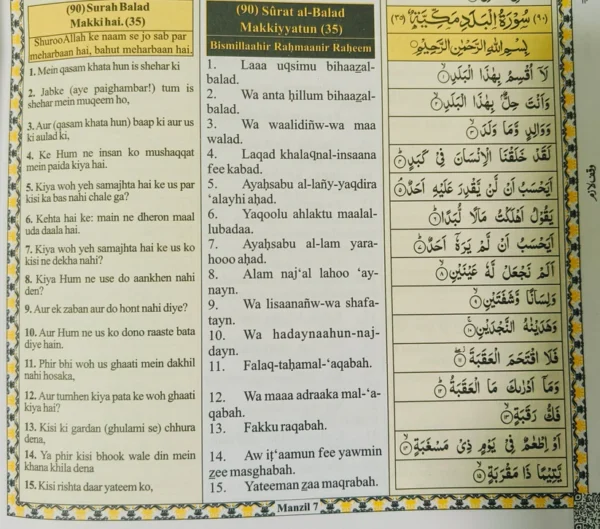 (90) Surah Balad
Makki hai. (35)
Shuroo Allah ke naam se jo sab par
meharbaan hai, bahut meharbaan hai.
1. Mein qasam khata hun is shehar ki
2. Jabke (aye paighambar!) tum is
shehar mein muqeem ho,
3. Aur (qasam khata hun) baap ki aur us
ki aulad ki,
4. Ke Hum ne insan ko mushaqqat
mein paida kiya hai.
5. Kiya woh yeh samajhta hai ke us par
kisi ka bas nahi chale ga?
6. Kehta hai ke: main ne dheron maal
uda daala hai.
7. Kiya woh yeh samajhta hai ke us ko
kisi ne dekha nahi?
8. Kiya Hum ne use do aankhen nahi
den?
9. Aur ek zaban aur do hont nahi diye?
10. Aur Hum ne us ko dono raaste bata
diye hain.
11. Phir bhi woh us ghaati mein dakhil
nahi hosaka,
12. Aur tumhen kiya pata ke woh ghaati
kiya hai?
13. Kisi ki gardan (ghulami se) chhura
dena,
14. Ya phir kisi bhook wale din mein
khana khila dena
15. Kisi rishta daar yateem ko,
(90) Sûrat al-Balad
Makkiyyatun (35)
Bismillaahir Raḥmaanir Raḥeem
1. Laaa uqsimu bihaaẕal-
balad.
2. Wa anta ḥillum bihaaẕal-
balad.
3. Wa waalidiñw-wa maa
walad.
4. Laqad khalaqnal-insaana
fee kabad.
5. Ayaḥsabu al-lañy-yaqdira
‘alayhi aḥad.
6. Yaqoolu ahlaktu maalal-
lubadaa.
7. Ayaḥsabu al-lam yara-
hooo aḥad.
8. Alam naj‘al lahoo ‘ay-
nayn.
9. Wa lisaanañw-wa shafa-
tayn.
10. Wa hadaynaahun-naj-
dayn.
11. Falaq-taḥamal-‘aqabah.
12. Wa maaa adraaka mal-‘a-
qabah.
13. Fakku raqabah.
14. Aw iṭ‘aamun fee yawmin
ẕee masghabah.
15. Yateeman ẕaa maqrabah.
(٩٠) سُوْرَةُ الْبَلَدِ مَكِّيَّةٌ (٣٥)
بِسْمِ اللهِ الرَّحْمٰنِ الرَّحِيْمِ
لَآ اُقْسِمُ بِهٰذَا الْبَلَدِ ١
وَاَنْتَ حِلٌّۢ بِهٰذَا الْبَلَدِ ٢
وَوَالِدٍ وَّمَا وَلَدَ ٣
لَقَدْ خَلَقْنَا الْاِنْسَانَ فِيْ كَبَدٍ ٤
اَيَحْسَبُ اَنْ لَّنْ يَّقْدِرَ عَلَيْهِ اَحَدٌ ٥
يَقُوْلُ اَهْلَكْتُ مَالًا لُّبَدًا ٦
اَيَحْسَبُ اَنْ لَّمْ يَرَهٗٓ اَحَدٌ ٧
اَلَمْ نَجْعَلْ لَّهٗ عَيْنَيْنِ ٨
وَلِسَانًا وَّشَفَتَيْنِ ٩
وَهَدَيْنٰهُ النَّجْدَيْنِ ١٠
فَلَا اقْتَحَمَ الْعَقَبَةَ ١١
وَمَآ اَدْرٰىكَ مَا الْعَقَبَةُ ١٢
فَكُّ رَقَبَةٍ ١٣
اَوْ اِطْعٰمٌ فِيْ يَوْمٍ ذِيْ مَسْغَبَةٍ ١٤
يَّتِيْمًا ذَا مَقْرَبَةٍ ١٥
وقف لازم
Manzil 7